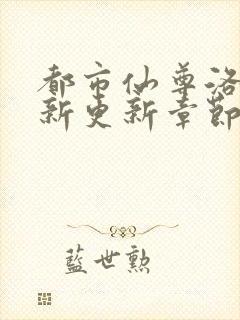 都市仙尊洛
新更新章節
藍世勲